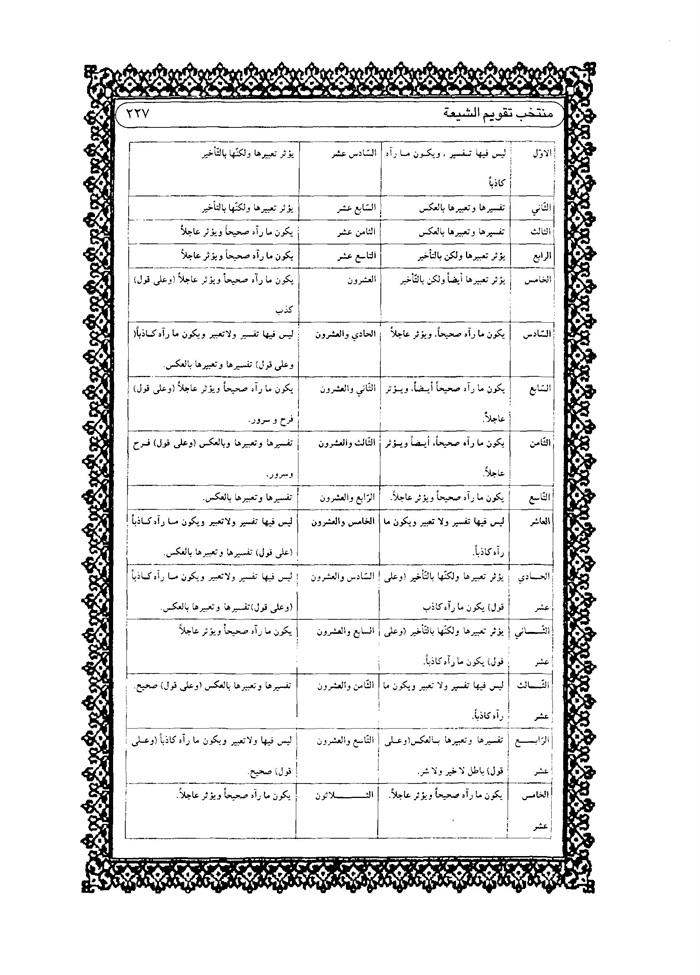 منتخب تقويم الشيعة ٢٢٧
الاوّل ليس فيها تـفسير ، ويكـون مـا رآه السّادس عشر يؤثر تعبيرها ولكنّها بالتّأخير
كاذباً
الثّاني تفسيرها وتعبيرها بالعكس السّابع عشر يؤثر تعبيرها ولكنّها بالتّأخير
الثالث تفسيرها وتعبيرها بالعكس الثامن عشر يكون ما رآه صحيحاً ويؤثر عاجلاً
الرابع يؤثر تعبيرها ولكن بالتأخير التاسع عشر يكون ما رآه صحيحاً ويؤثر عاجلاً
الخامس يؤثر تعبيرها أيضاً ولكن بالتّأخير العشرون يكون ما رآه صحيحاً ويؤثر عاجلاً (وعلى قول)
كذب
السّادس يكون ما رآه صحيحاً، ويؤثر عاجلاً الحادي والعشرون ليس فيها تفسير ولاتعبير ويكون ما رآه كـاذباً(
وعلى قول) تفسيرها و تعبيرها بالعكس.
السّابع يكون ما رآه صحيحاً أيـضاً، ويـؤثر الثّاني والعشرون يكون ما رآه صحيحاً ويؤثر عاجلاً (وعلى قول)
عاجلاً. فرح و سرور.
الثّامن يكون ما رآه صحيحاً، أيـضاً ويـؤثر الثّالث والعشرون تفسيرها وتعبيرها وبالعكس (وعلى قول) فـرح
عاجلاً. وسرور.
التّاسع يكون ما رآه صحيحاً ويؤثر عاجلاً. الرّابع والعشرون تفسيرها وتعبيرها بالعكس.
العاشر ليس فيها تفسير ولا تعبير ويكون ما الخامس والعشرون ليس فيها تفسير ولاتعبير ويكون مـا رآه كـاذباً
رآه كاذباً. (على قول) تفسيرها و تعبيرها بالعكس.
الحـادي يؤثر تعبيرها ولكنّها بالتّأخير (وعلى السّادس والعشرون ليس فيها تفسير ولاتعبير ويكون مـا رآه كـاذباً
عشر قول) يكون ما رآه كاذب (وعلى قول)تفسيرها و تعبيرها بالعكس.
الثّـاني يؤثر تعبيرها ولكنّها بالتّأخير (وعلى السابع والعشرون يكون ما رآه صحيحاً ويؤثر عاجلاً
عشر قول) يكون ما رآه كاذباً.
الثّـالث ليس فيها تفسير ولا تعبير ويكون ما الثّامن والعشرون تفسيرها وتعبيرها بالعكس (وعلى قول) صحيح.
عشر رآه كاذباً.
الرّابـع تفسيرها و تعبيرها بـالعكس(وعـلى التّاسع والعشرون ليس فيها ولاتعبير ويكون ما رآه كاذباً (وعـلى
عشر قول) باطل لا خير ولا شر. قول) صحيح.
الخامس يكون ما رآه صحيحاً ويؤثر عاجلاً. الثـلاثون يكون ما رآه صحيحاً ويؤثر عاجلاً.
عشر